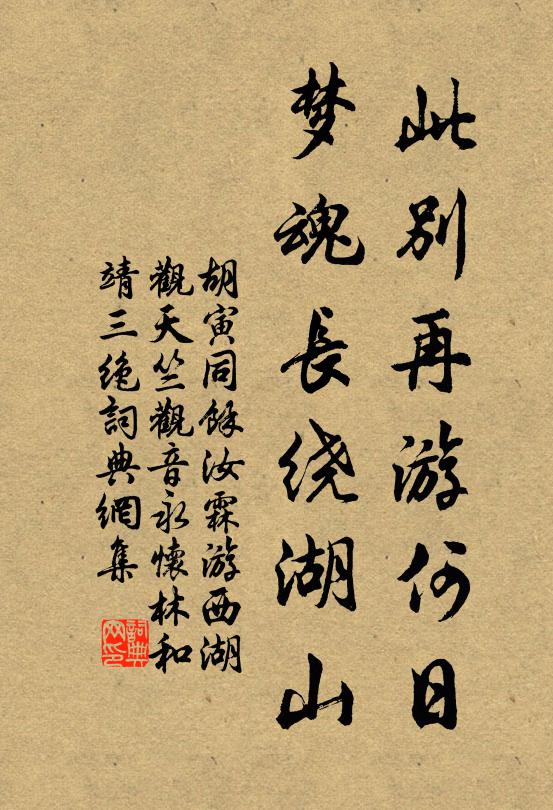 此别再游何日
梦魂長绕湖山
胡寅同餘汝霖游西湖
觀天竺觀音永懷林和
靖三绝詞典網集
詞典
网印